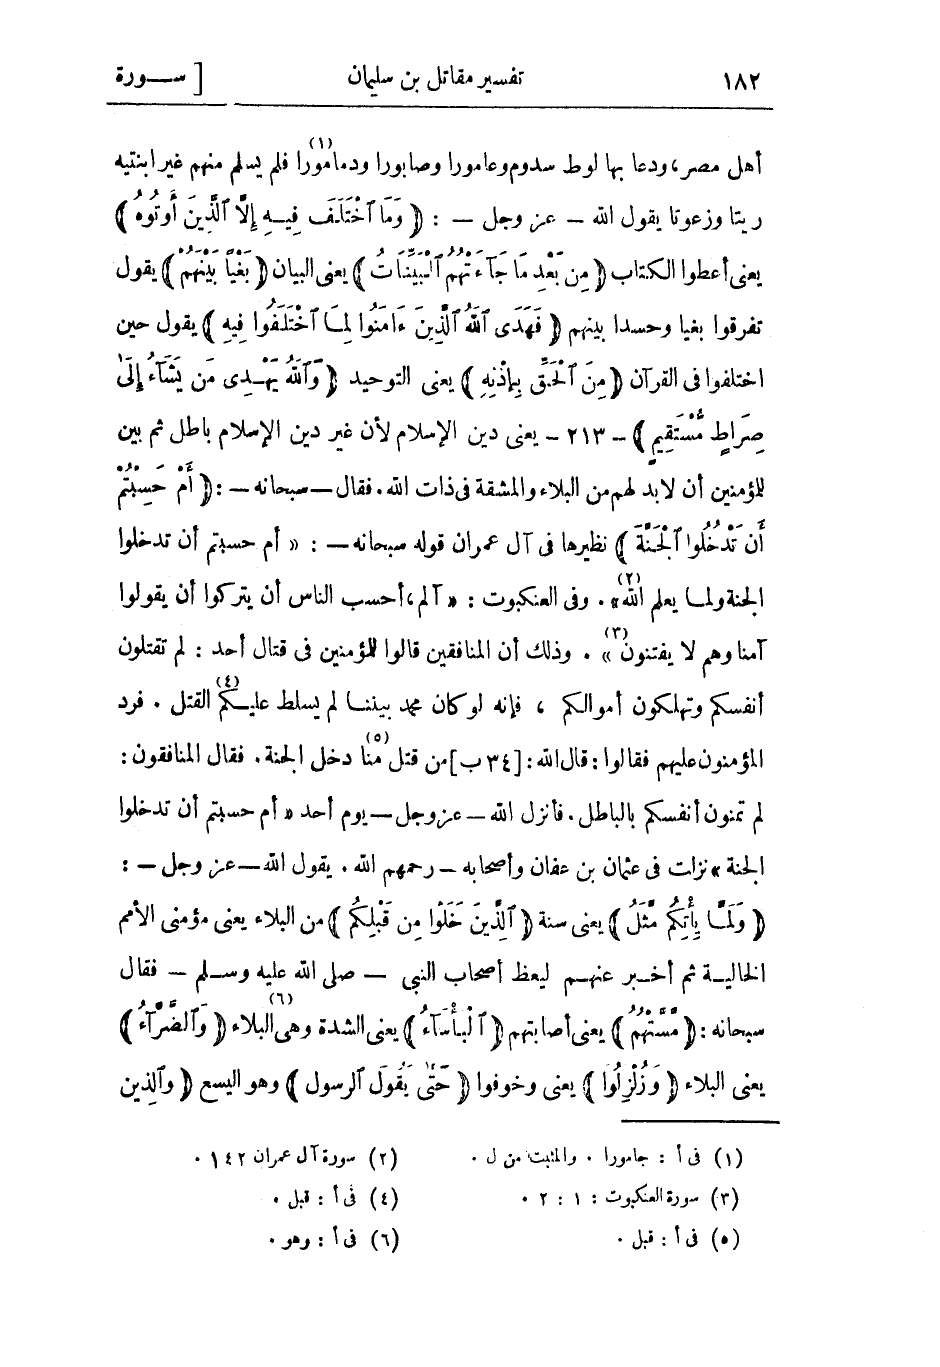 ١٨٢ تفسير مقاتل بن سليمان [ ســورة
أهل مصر، ودعا بها لوط سدوم وعامورا وصابورا ودمامورا(١) فلم يسلم منهم غير ابنتيه
ريتا وزعوتا يقول الله — عز وجل — : ﴿ وَمَا ٱخْتَلَفَ فِيهِ إِلَّا ٱلَّذِينَ أُوتُوهُ ﴾
يعنى أعطوا الكتاب ﴿ مِن بَعْدِ مَا جَآءَتْهُمُ ٱلْبَيِّنَاتُ ﴾ يعنى البيان ﴿ بَغْيًا بَيْنَهُمْ ﴾ يقول
تفرقوا بغيا وحسدا بينهم ﴿ فَهَدَى ٱللَّهُ ٱلَّذِينَ ءَامَنُوا لِمَا ٱخْتَلَفُوا فِيهِ ﴾ يقول حين
اختلفوا فى القرآن ﴿ مِنَ ٱلْحَقِّ بِإِذْنِهِ ﴾ يعنى التوحيد ﴿ وَٱللَّهُ يَهْدِى مَن يَشَآءُ إِلَىٰ
صِرَاطٍ مُّسْتَقِيمٍ ﴾ — ٢١٣ — يعنى دين الإسلام لأن غير دين الإسلام باطل ثم بين
للمؤمنين أن لابد لهم من البلاء والمشقة فى ذات الله . فقال — سبحانه — : ﴿ أَمْ حَسِبْتُمْ
أَن تَدْخُلُوا ٱلْجَنَّةَ ﴾ نظيرها فى آل عمران قوله سبحانه — : « أم حسبتم أن تدخلوا
الجنة ولما يعلم الله(٢)» . وفى العنكبوت : « آلم، أحسب الناس أن يتركوا أن يقولوا
آمنا وهم لا يفتنون(٣) » . وذلك أن المنافقين قالوا للمؤمنين فى قتال أحد : لم تقتلون
أنفسكم وتهلكون أموالكم ، فإنه لو كان محمد بيننا لم يسلط عليكم(٤) القتل . فرد
المؤمنون عليهم فقالوا : قال الله : [ ٣٤ ب ] من قتل(٥) منا دخل الجنة . فقال المنافقون :
لم تمنون أنفسكم بالباطل . فأنزل الله — عز وجل — يوم أحد « أم حسبتم أن تدخلوا
الجنة » نزلت فى عثمان بن عفان وأصحابه — رحمهم الله . يقول الله — عز وجل — :
﴿ وَلَمَّا يَأْتِكُم مَّثَلُ ﴾ يعنى سنة ﴿ ٱلَّذِينَ خَلَوْا مِن قَبْلِكُم ﴾ من البلاء يعنى مؤمنى الأمم
الخاليــة ثم أخــبر عنهــم ليعظ أصحاب النبي — صلى الله عليه وســلم — فقال
سبحانه : ﴿ مَّسَّتْهُمُ ﴾ يعنى أصابتهم ﴿ ٱلْبَأْسَآءُ ﴾ يعنى الشدة وهى(٦) البلاء ﴿ وَٱلضَّرَّآءُ ﴾
يعنى البلاء ﴿ وَزُلْزِلُوا ﴾ يعنى وخوفوا ﴿ حَتَّىٰ يَقُولَ ٱلرسول ﴾ وهو اليسع ﴿ وٱلَّذِين
(١) فى أ : جامورا . والمثبت من ل . (٢) سورة آل عمران ١٤٢ .
(٣) سورة العنكبوت : ١ : ٢ . (٤) فى أ : قبل .
(٥) فى أ : قبل . (٦) فى أ : وهو .